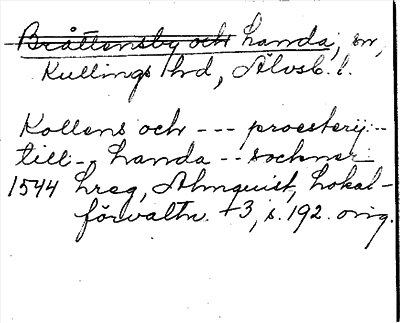 Bråttensby och Landa, sn,
Kullings hd, Älvsb. l.
Kollens och --- proesterij --
till -- Landa -- sockner
1544 Lreg, Almquist, Lokal-
förvaltn. +3, s. 192. orig.